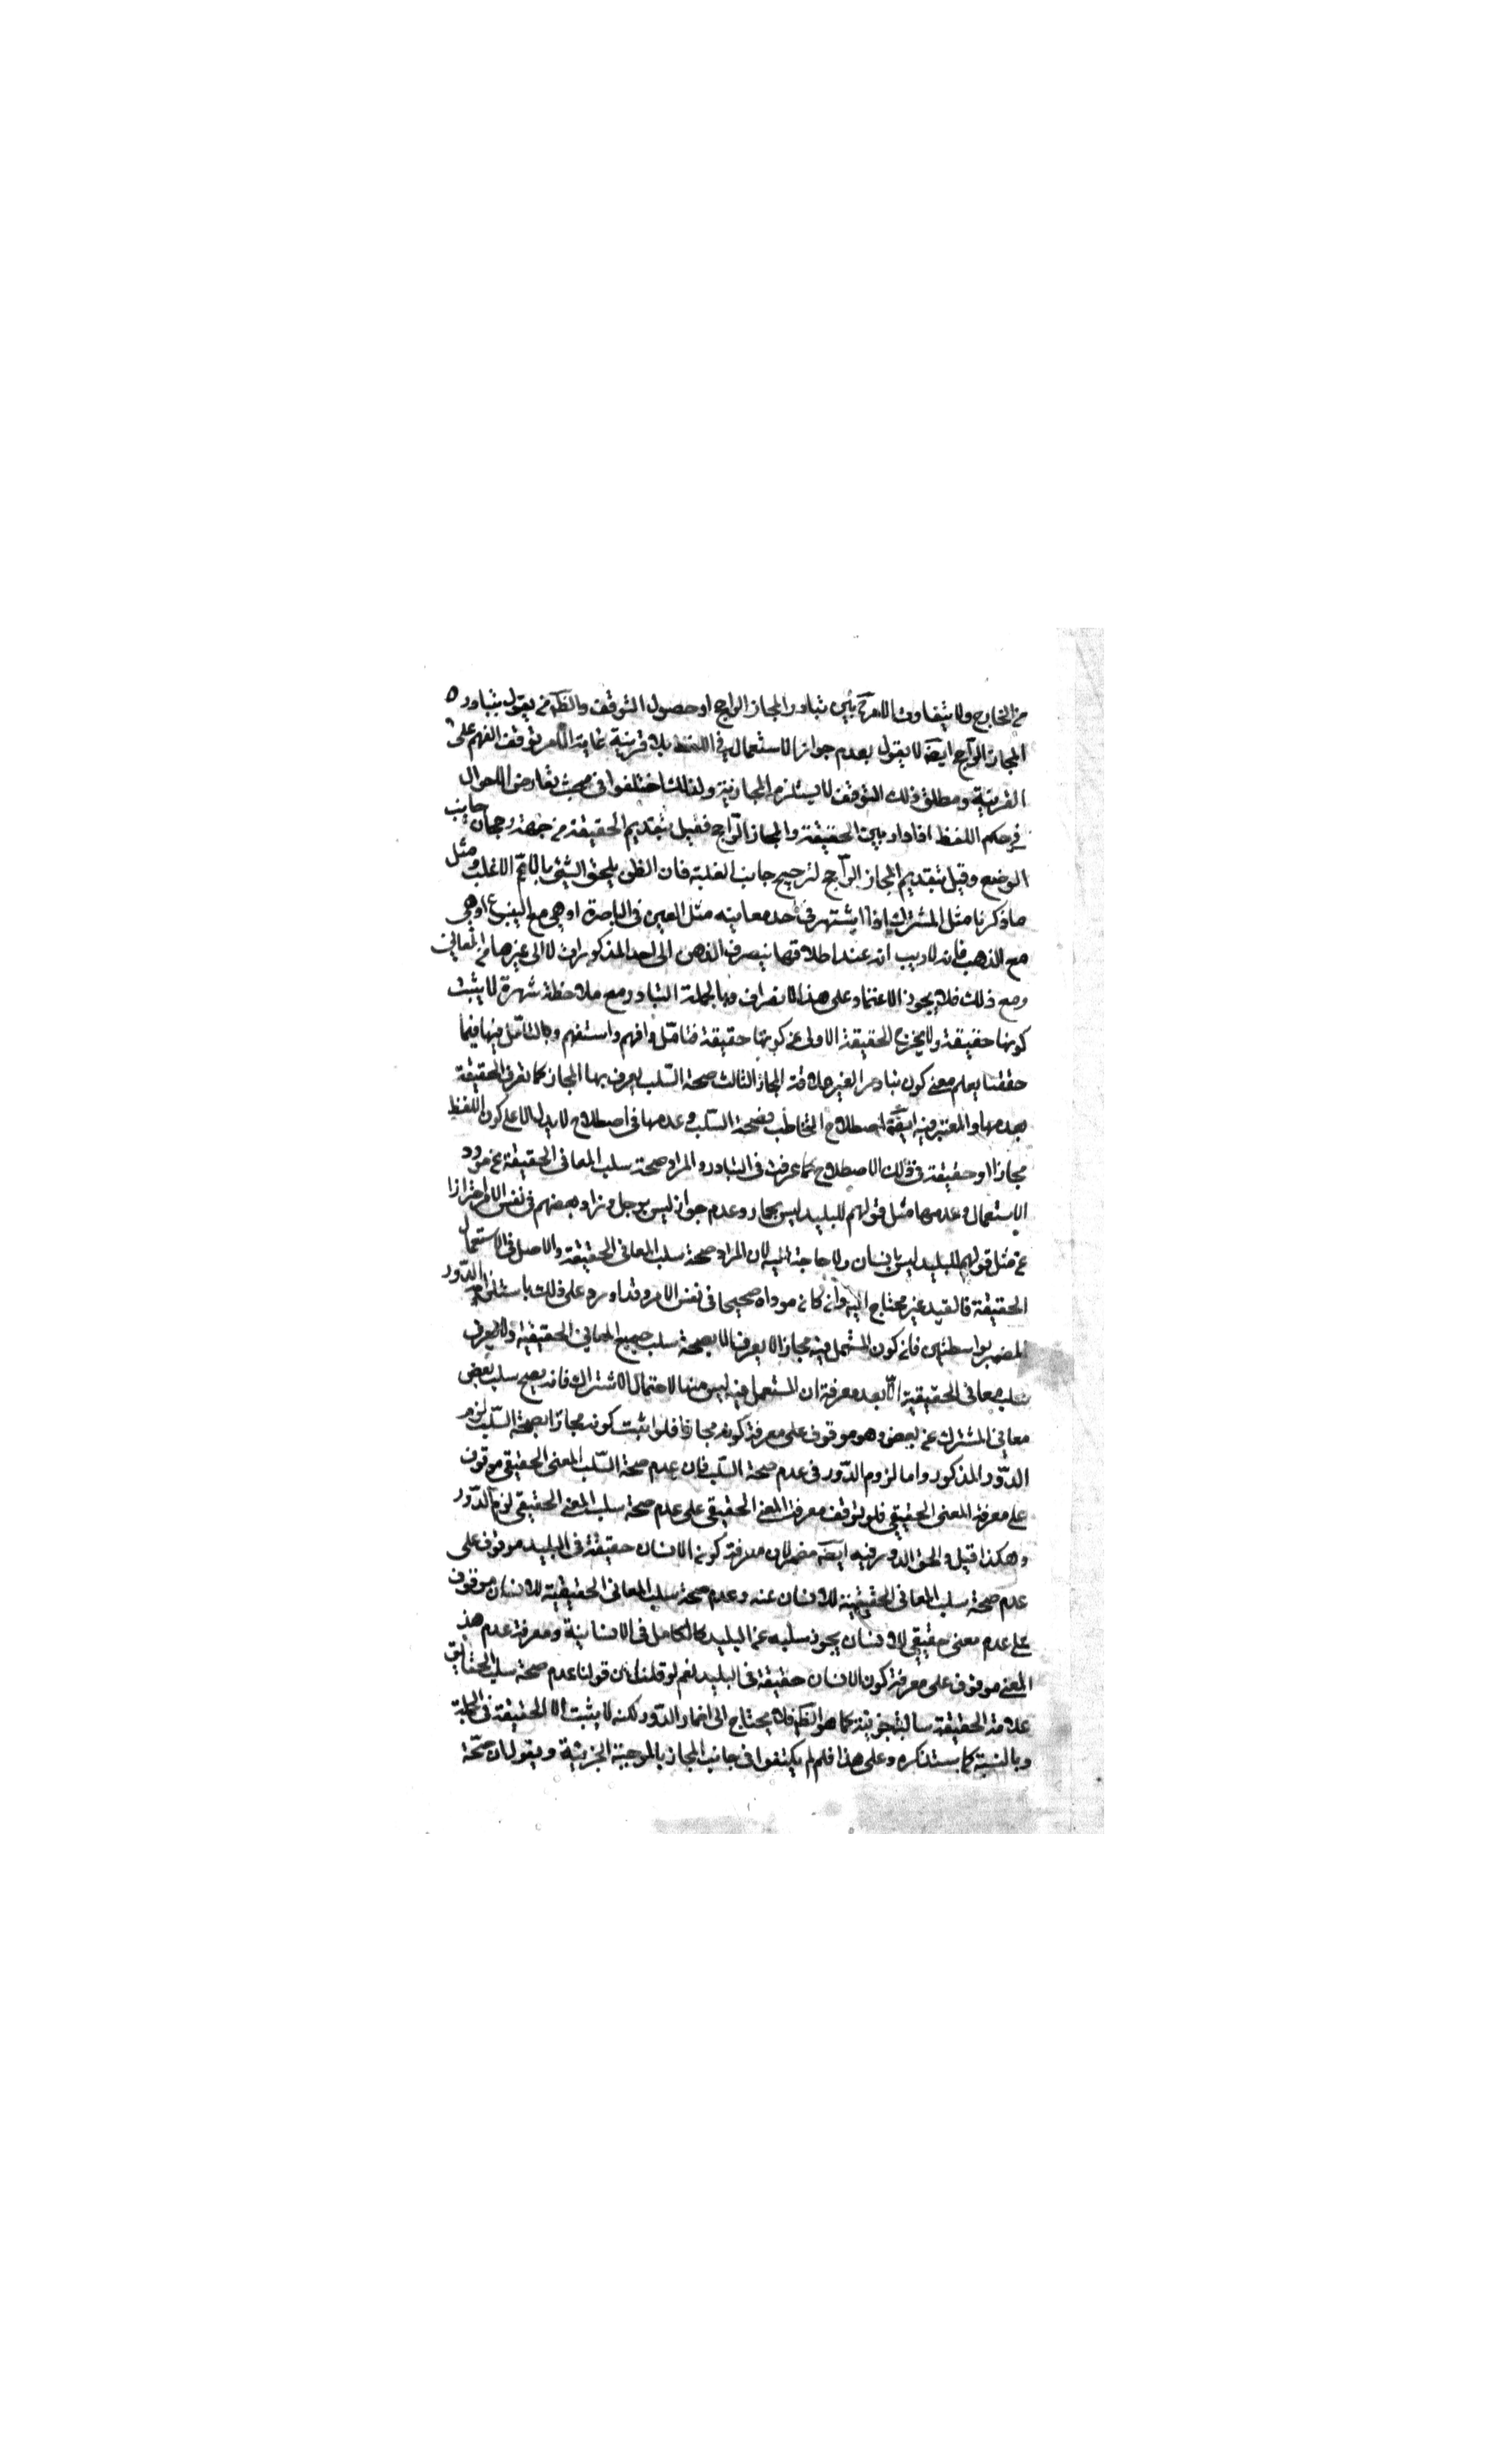 من الخارج ولا يتفاوت الامر بين تبادر المجاز الراجح او حصول التوقف والظ من يقول بتبادر
المجاز الراجح ايضا لا يقول بعدم جواز الاستعمال في اللفظ بلا قرينة غاية الامر توقف الفهم على
القرينة ومطلق ذلك التوقف لا يستلزم المجازية ولذلك اختلفوا في مبحث تعارض الاحوال
في حكم اللفظ اذا دار بين الحقيقة والمجاز الراجح فقيل بتقديم الحقيقة من جهة رجحان جانب
الوضع وقيل بتقديم المجاز الراجح لترجيح جانب الغلبة فان الظن يلحق الشئ بالاعم الاغلب ومثل
ما ذكرنا مثل المشترك اذا اشتهر في احد معانيه مثل العين في الباصرة او هي مع الينبوع او هي
مع الذهب فانه لا ريب انه عند اطلاقها ينصرف الذهن الى احد المذكورات لا الى غيرها من المعاني
ومع ذلك فلا يجوز الاعتماد على هذا الانصراف وبالجملة التبادر مع ملاحظة شهرة لا يثبت
كونها حقيقة ولا يخرج الحقيقة الاولى عن كونها حقيقة فتامل وافهم واستفهم وبالتامل فيها فيما
حققنا يعلم معنى كون تبادر الغير علامة المجاز الثالث صحة السلب يعرف بها المجاز كما تعرف الحقيقة
بعدمها والمعتبر فيه ايضا اصطلاح التخاطب فصحة السلب وعدمها في اصطلاح لا يدل الا على كون اللفظ
مجازا او حقيقة في ذلك الاصطلاح كما عرفت في التبادر والمراد صحة سلب المعاني الحقيقة عن مورد
الاستعمال وعدمها مثل قولهم للبليد ليس بحمار وعدم جواز ليس برجل وزاد بعضهم في نفس الامر احترازا
عن مثل قولهم للبليد ليس بانسان ولا حاجة اليه لان المراد صحة سلب المعاني الحقيقة والاصل في الاستعمال
الحقيقة فالقيد غير محتاج اليه وان كان موداه صحيحا في نفس الامر وقد اورد على ذلك باستلزام الدور
المضمر بواسطتين فان كون المستعمل فيه مجازا لا يعرف الا بصحة سلب جميع المعاني الحقيقية ولا يعرف
سلب معاني الحقيقية الا بعد معرفة ان المستعمل فيه ليس منها لاحتمال الاشتراك فانه يصح سلب بعض
معاني المشترك عن بعض وهو موقوف على معرفة كونه مجازا فلو اثبت كونه مجازا بصحة السلب لزم
الدور المذكور واما لزوم الدور في عدم صحة السلب فان عدم صحة السلب المعنى الحقيقي موقوف
على معرفة المعنى الحقيقي فلو توقف معرفة المعنى الحقيقي على عدم صحة سلب المعنى الحقيقي لزم الدور
وهكذا قيل والحق الدور فيه ايضا مضمر لان معرفة كون الانسان حقيقة في البليد موقوف على
عدم صحة سلب المعاني الحقيقية للانسان عنه وعدم صحة سلب المعاني الحقيقية للانسان موقوف
على عدم معنى حقيقي للانسان يجوز سلبه عن البليد كالكامل في الانسانية ومعرفة عدم هذ
المعنى موقوف على معرفة كون الانسان حقيقة في البليد نعم لو قلنا بان قولنا عدم صحة سلب الحقايق
علامة الحقيقة سالبة جزئية كما هو الظ فلا يحتاج الى اضمار الدور لكنه لا يثبت الا الحقيقة في الجملة
وبالنسبة كما سنذكره وعلى هذا فلم لم يكتفوا في جانب المجاز بالموجبة الجزئية ويقول ان صحة